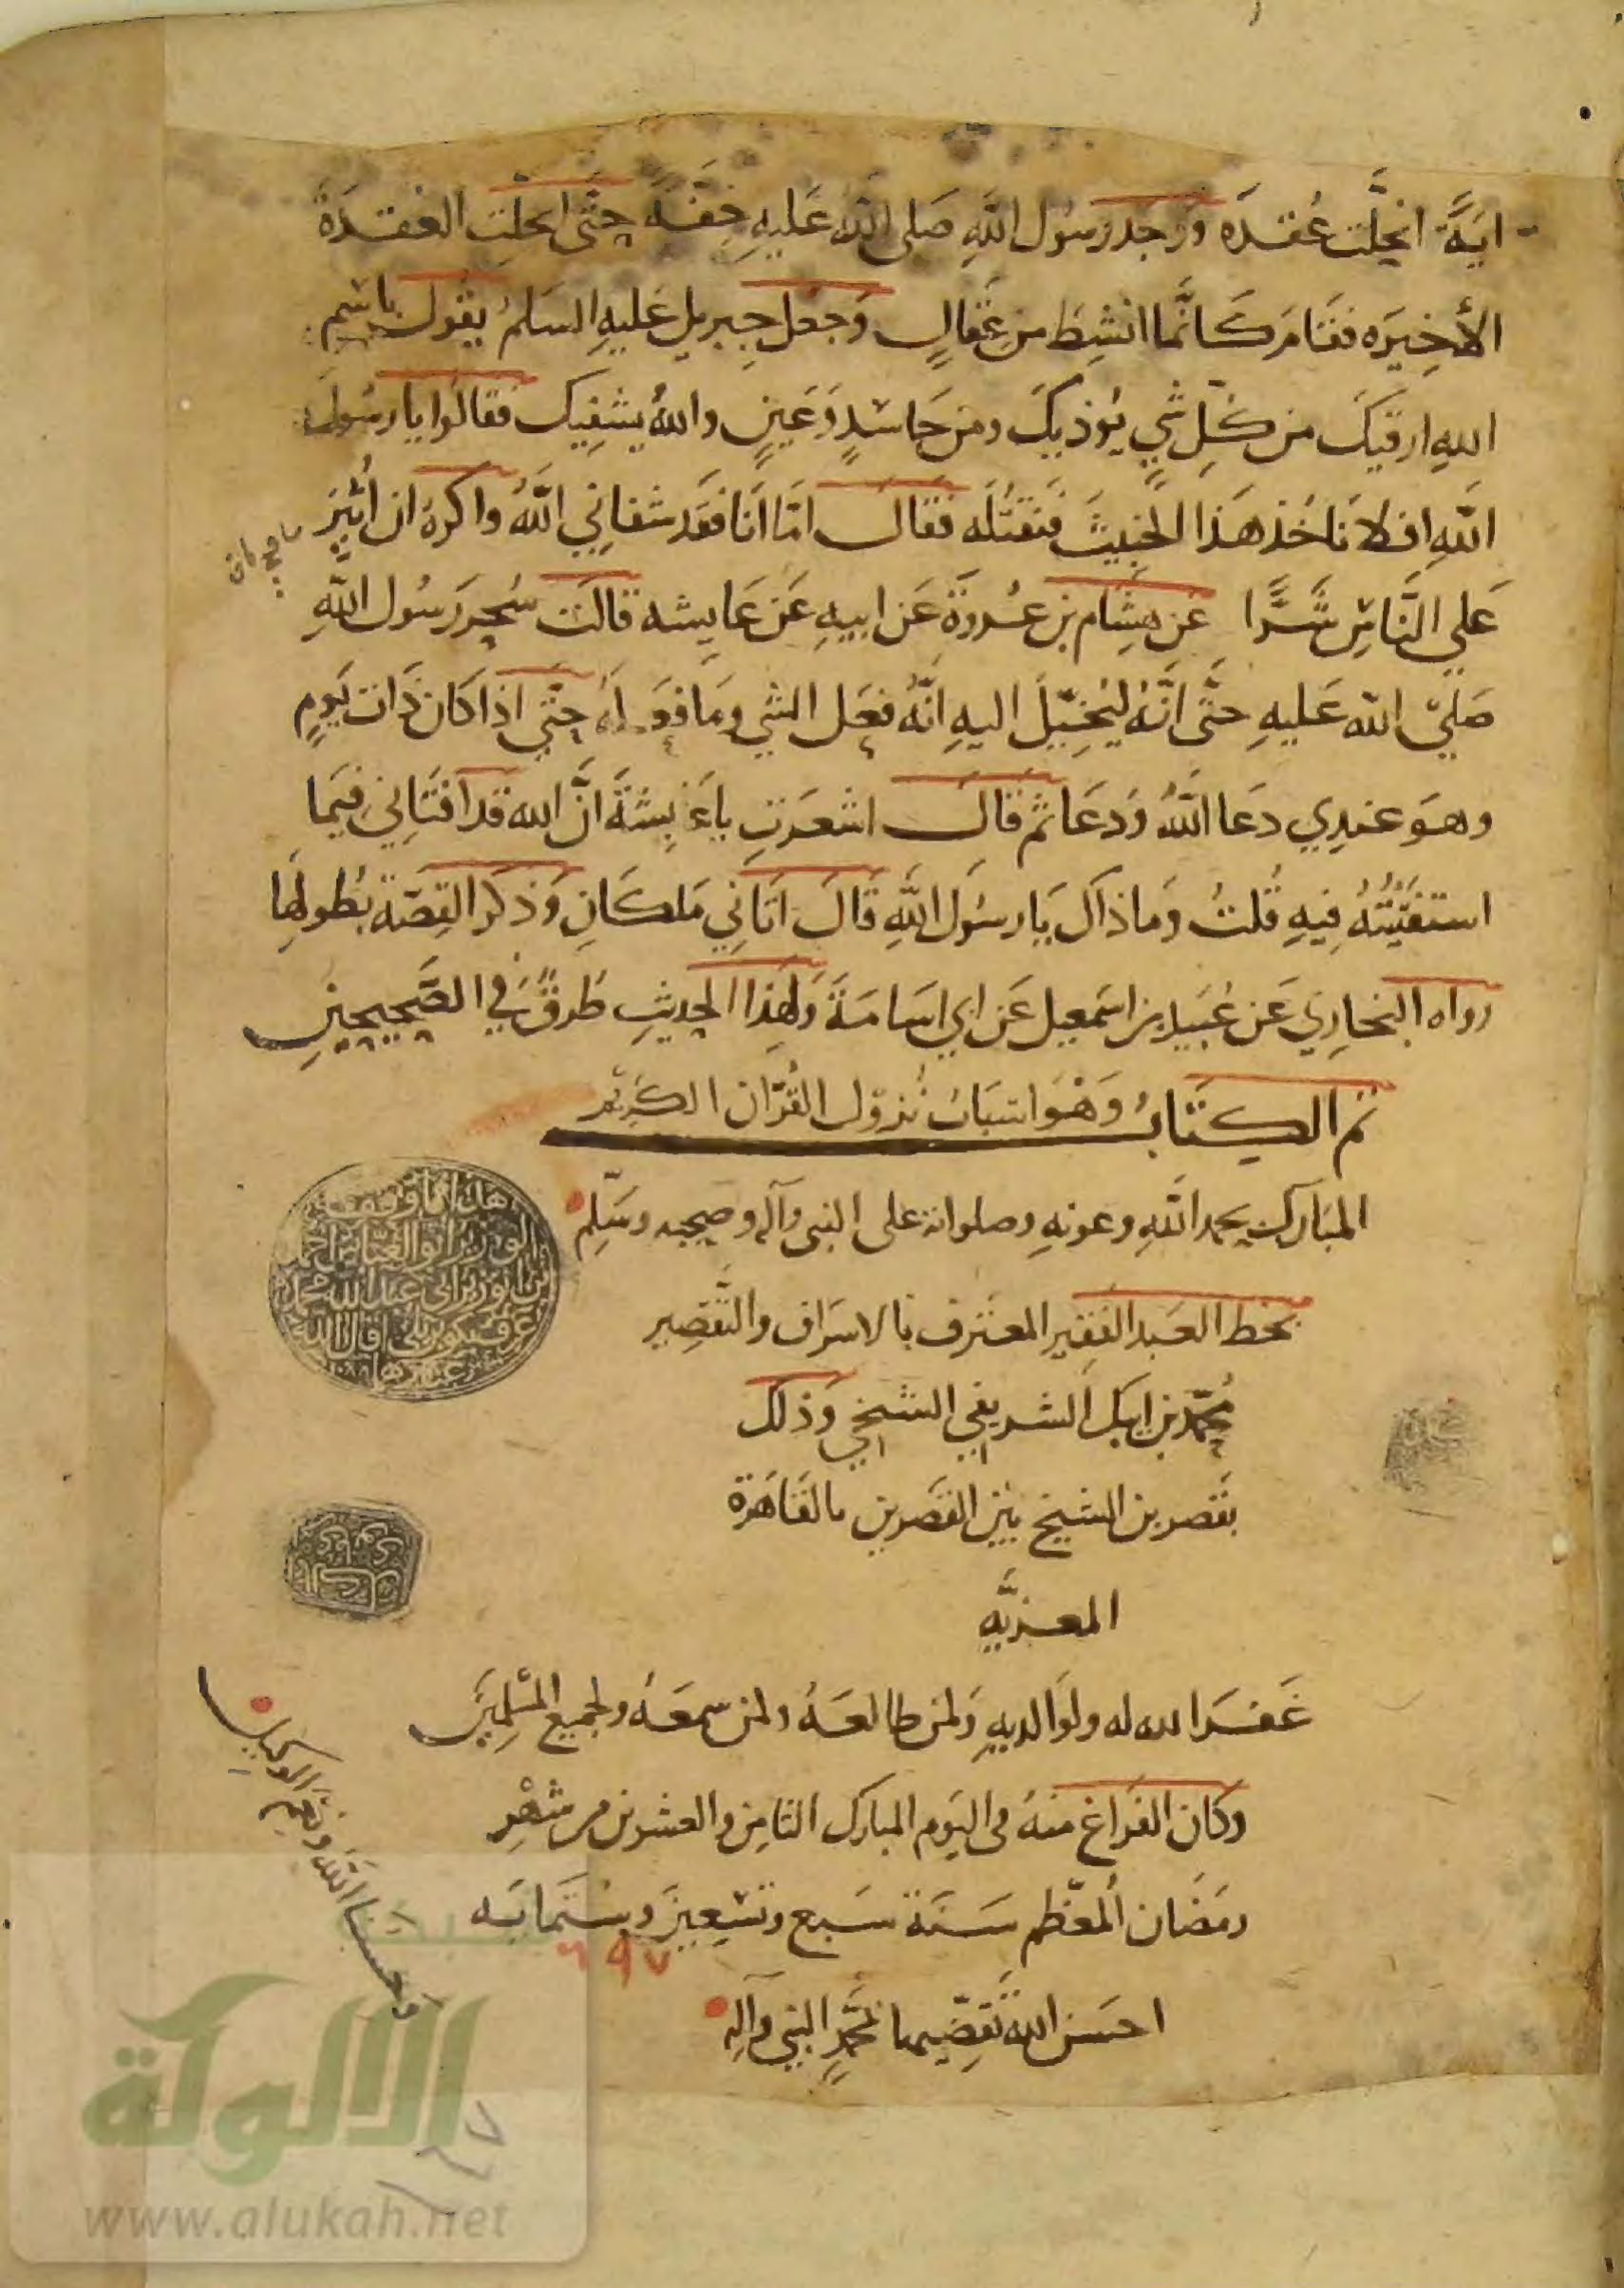 ايَةً انحلّت عُقدَه وَوَجَد رسُول اللَّهِ صَلى اللّه عَليهِ خِفَّةً حتَّى انحلّت العُقدَةُ
الأخِيرَه فقَامَ كَانَّما انشِطَ من عِقَالٍ وَجعَل جِبريل عَليهِ السَلمُ يقُول باسْمِ
اللهِ ارقيكَ من كُلِّ شيٍ يُوذيكَ ومن حَاسْدٍ وَعَينٍ واللهُ يشفِيكَ فقالُوا يا رسُولَ
اللَّهِ افلا نَاخُذ هَذا الخبِيثَ فنَقتُلَه فقَالَ امّا انَا فقَد شفانِي اللَّهُ واكرهُ ان أُثِيرَ
عَلي النَّاسِ شَرًّا عَن هِشَام بن عُروَةَ عَن ابيهِ عَن عَايِشه قالَت سُحِر رَسُول اللَّهِ
صَليّ اللّه عَليهِ حَتَّى انَّهُ ليُخيّل اليهِ انَّهُ فعَل الشي ومَا فعَلهُ حتَّي اذا كَان ذَات يَومٍ
وهوَ عندِي دعَا اللَّهَ وَدعَا ثم قالَ اشعَرتِ يا عَايِشَةَ انَّ الله قد افتَانِي فيمَا
استفتَيتُهُ فِيهِ قُلتُ وَما ذاكَ يَا رسُول اللَّهِ قَالَ اتَانِي مَلكَانِ وَذكَر القِصَّة بطُولِهَا
رواه البخارِي عَن عُبَيد بن اسمَعِيل عَن ابي اسَامَةَ وَلهَذا الحدِيثِ طُرقٌ في الصَّحِيحَينِ
تم الكتَابُ وَهُوَ اسبَابُ نُزوُل القُرآن الكَرِيْم
المبَارك بحمد اللَّهِ وعونهِ وصلواته على النبي وآله وصحبه وسَلّم
بخط العَبد الفَقِير المعترف بالاسرَاف والتَّقصِير
مُحمّد بن ايبَك الشريفي الشيخي وَذلك
بقصر بن الشيخ بين القصرين بالقَاهرَة
المعزيَّهِ
غَفَرَ الله له ولوَالديهِ وَلمن طالعَهُ ولمن سمعَهُ ولجميع المسْلِمِينَ
وكَان الفَراغ منهُ في اليَوم المبارك الثامِن والعشرين من شهْر
رمَضَان المعَظّم سَنَة سَبع وتسْعِينَ وستمَايَه
٦٩٧
احسَن اللّه تقَضِّيها بمُحمّدٍ النبي وآلِهِ
حسبنا اللَّهُ ونِعم الوكيل
الألوكة
www.alukah.net